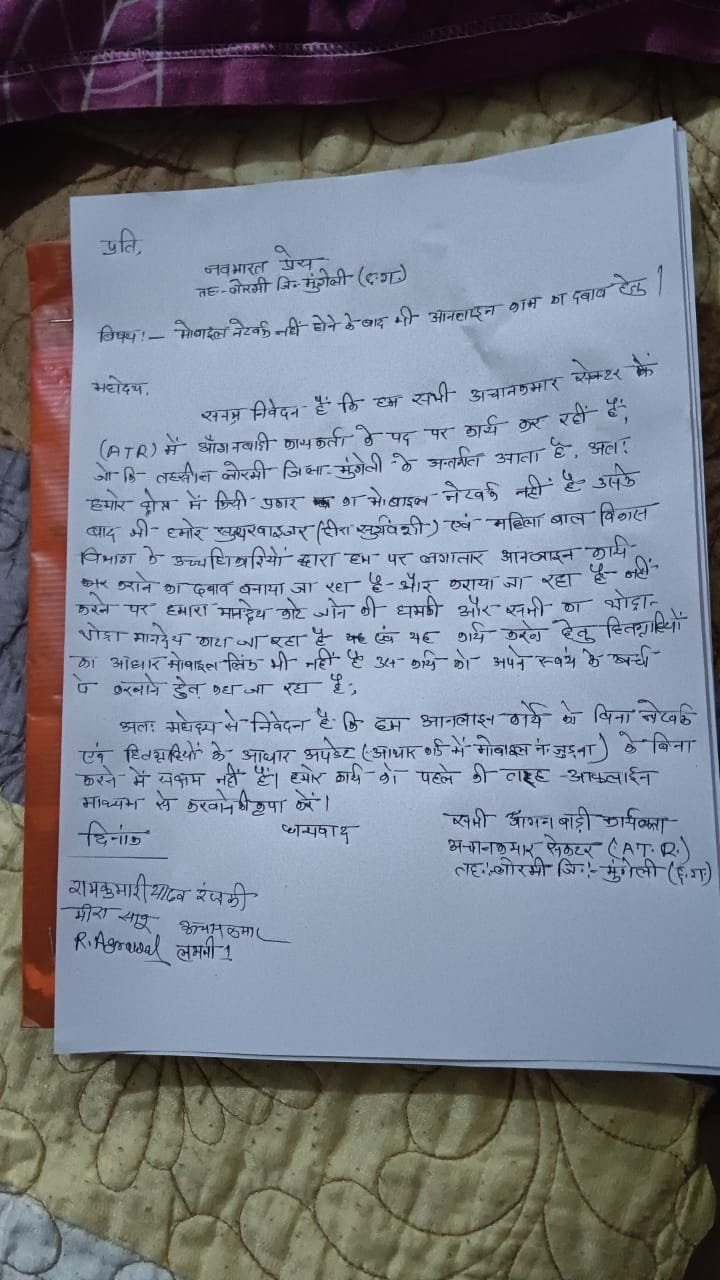 प्रति,
नवभारत प्रेस
तह:-लोरमी जि:-मुंगेली (छ.ग.)
विषय:- मोबाइल नेटवर्क नहीं होने के बाद भी आनलाइन काम का दबाव हेतु।
महोदय,
सनम्र निवेदन हैं कि हम सभी अचानकमार सेक्टर के
(ATR) में आँगनबाडी कार्यकर्ता के पद पर कार्य कर रहीं हैं,
जो कि तहसील लोरमी जिला-मुंगेली के अन्तर्गत आता है, अतः
हमारे क्षेत्र में किसी प्रकार का मोबाइल नेटवर्क नहीं है उसके
बाद भी हमारे सुपरवाइजर (हीरा सूर्यवंशी) एवं महिला बाल विकास
विभाग के उच्चधिकारियों द्वारा हम पर लगातार आनलाइन कार्य
कराने का दबाव बनाया जा रहा है और कराया जा रहा है नहीं
करने पर हमारा मानदेय काटे जाने की धमकी और सभी का थोडा-
थोडा मानदेय काटा जा रहा है एवं यह कार्य करने हेतु हितग्राहियों
का आधार मोबाइल लिंक भी नहीं है उस कार्य को अपने स्वयं के खर्चा
पे करवाने हेतु कहा जा रहा है,
अतः महोदय से निवेदन है कि हम आनलाइन कार्य को बिना नेटवर्क
एवं हितग्राहियों के आधार अपडेट (आधार कार्ड में मोबाइल नं. जुड़ना) के बिना
करने में सक्षम नहीं हैं। हमारे कार्य को पहले की तरह आफलाईन
माध्यम से करवाने की कृपा करें।
दिनांक धन्यवाद सभी आँगनबाड़ी कार्यकर्ता
अचानकमार सेक्टर (A.T.R.)
तह:-लोरमी जि:-मुंगेली (छ.ग.)
रामकुमारी यादव रंजकी
मीरा साहू अचानकमार
R. Agrawal लमनी-1